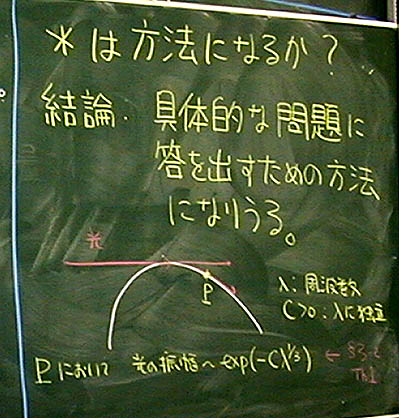 *は方法になるか?
結論. 具体的な問題に
答を出すための方法
になりうる。
光
P
λ: 周波数
C>0: λに独立
Pにおいて 光の振幅~exp(-Cλ^{1/3}) ← 83-2
Th1